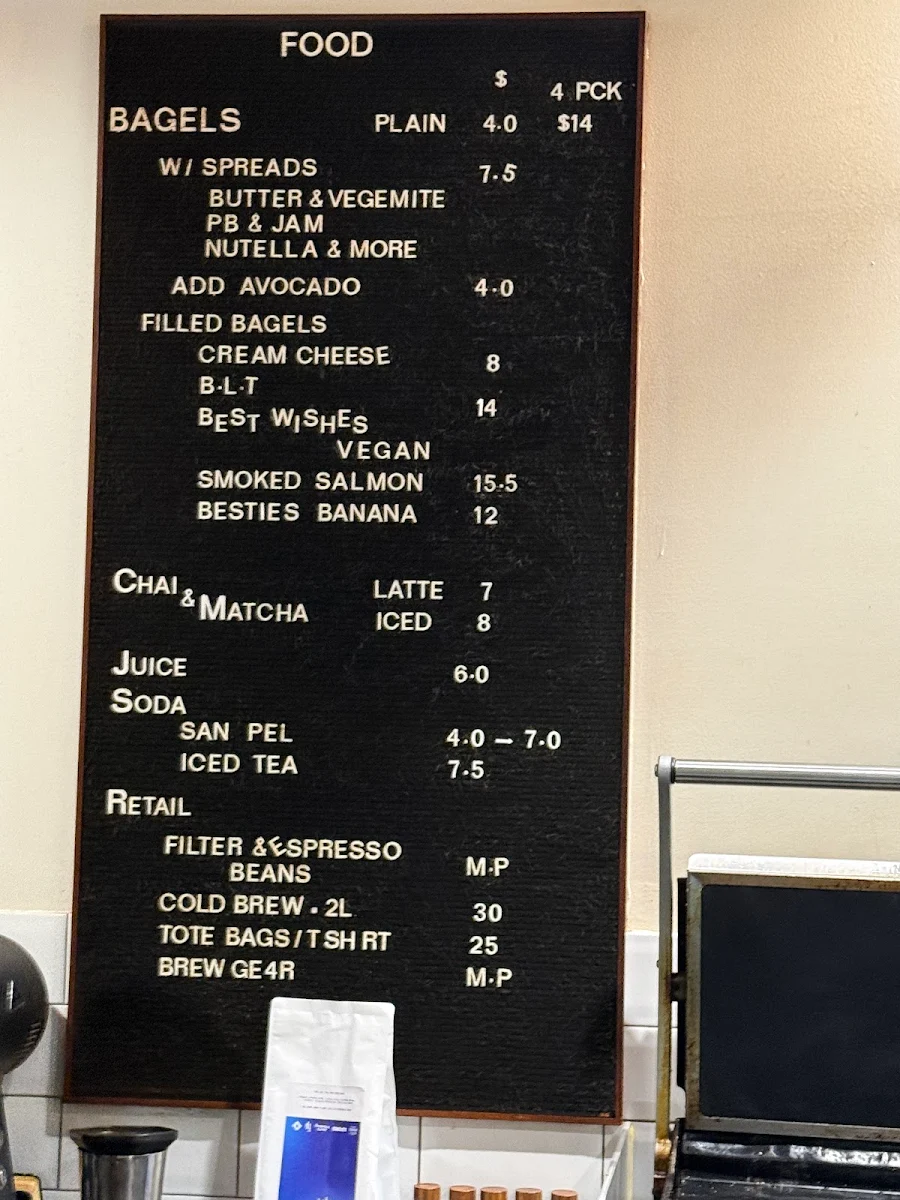 FOOD
$ 4 PCK
BAGELS PLAIN 4.0 $14
W/ SPREADS 7.5
BUTTER & VEGEMITE
PB & JAM
NUTELLA & MORE
ADD AVOCADO 4.0
FILLED BAGELS
CREAM CHEESE 8
B.L.T
BEST WISHES 14
VEGAN
SMOKED SALMON 15.5
BESTIES BANANA 12
CHAI & MATCHA LATTE 7
ICED 8
JUICE 6.0
SODA
SAN PEL 4.0 – 7.0
ICED TEA 7.5
RETAIL
FILTER & ESPRESSO
BEANS M.P
COLD BREW . 2L 30
TOTE BAGS / T SH RT 25
BREW GE4R M.P